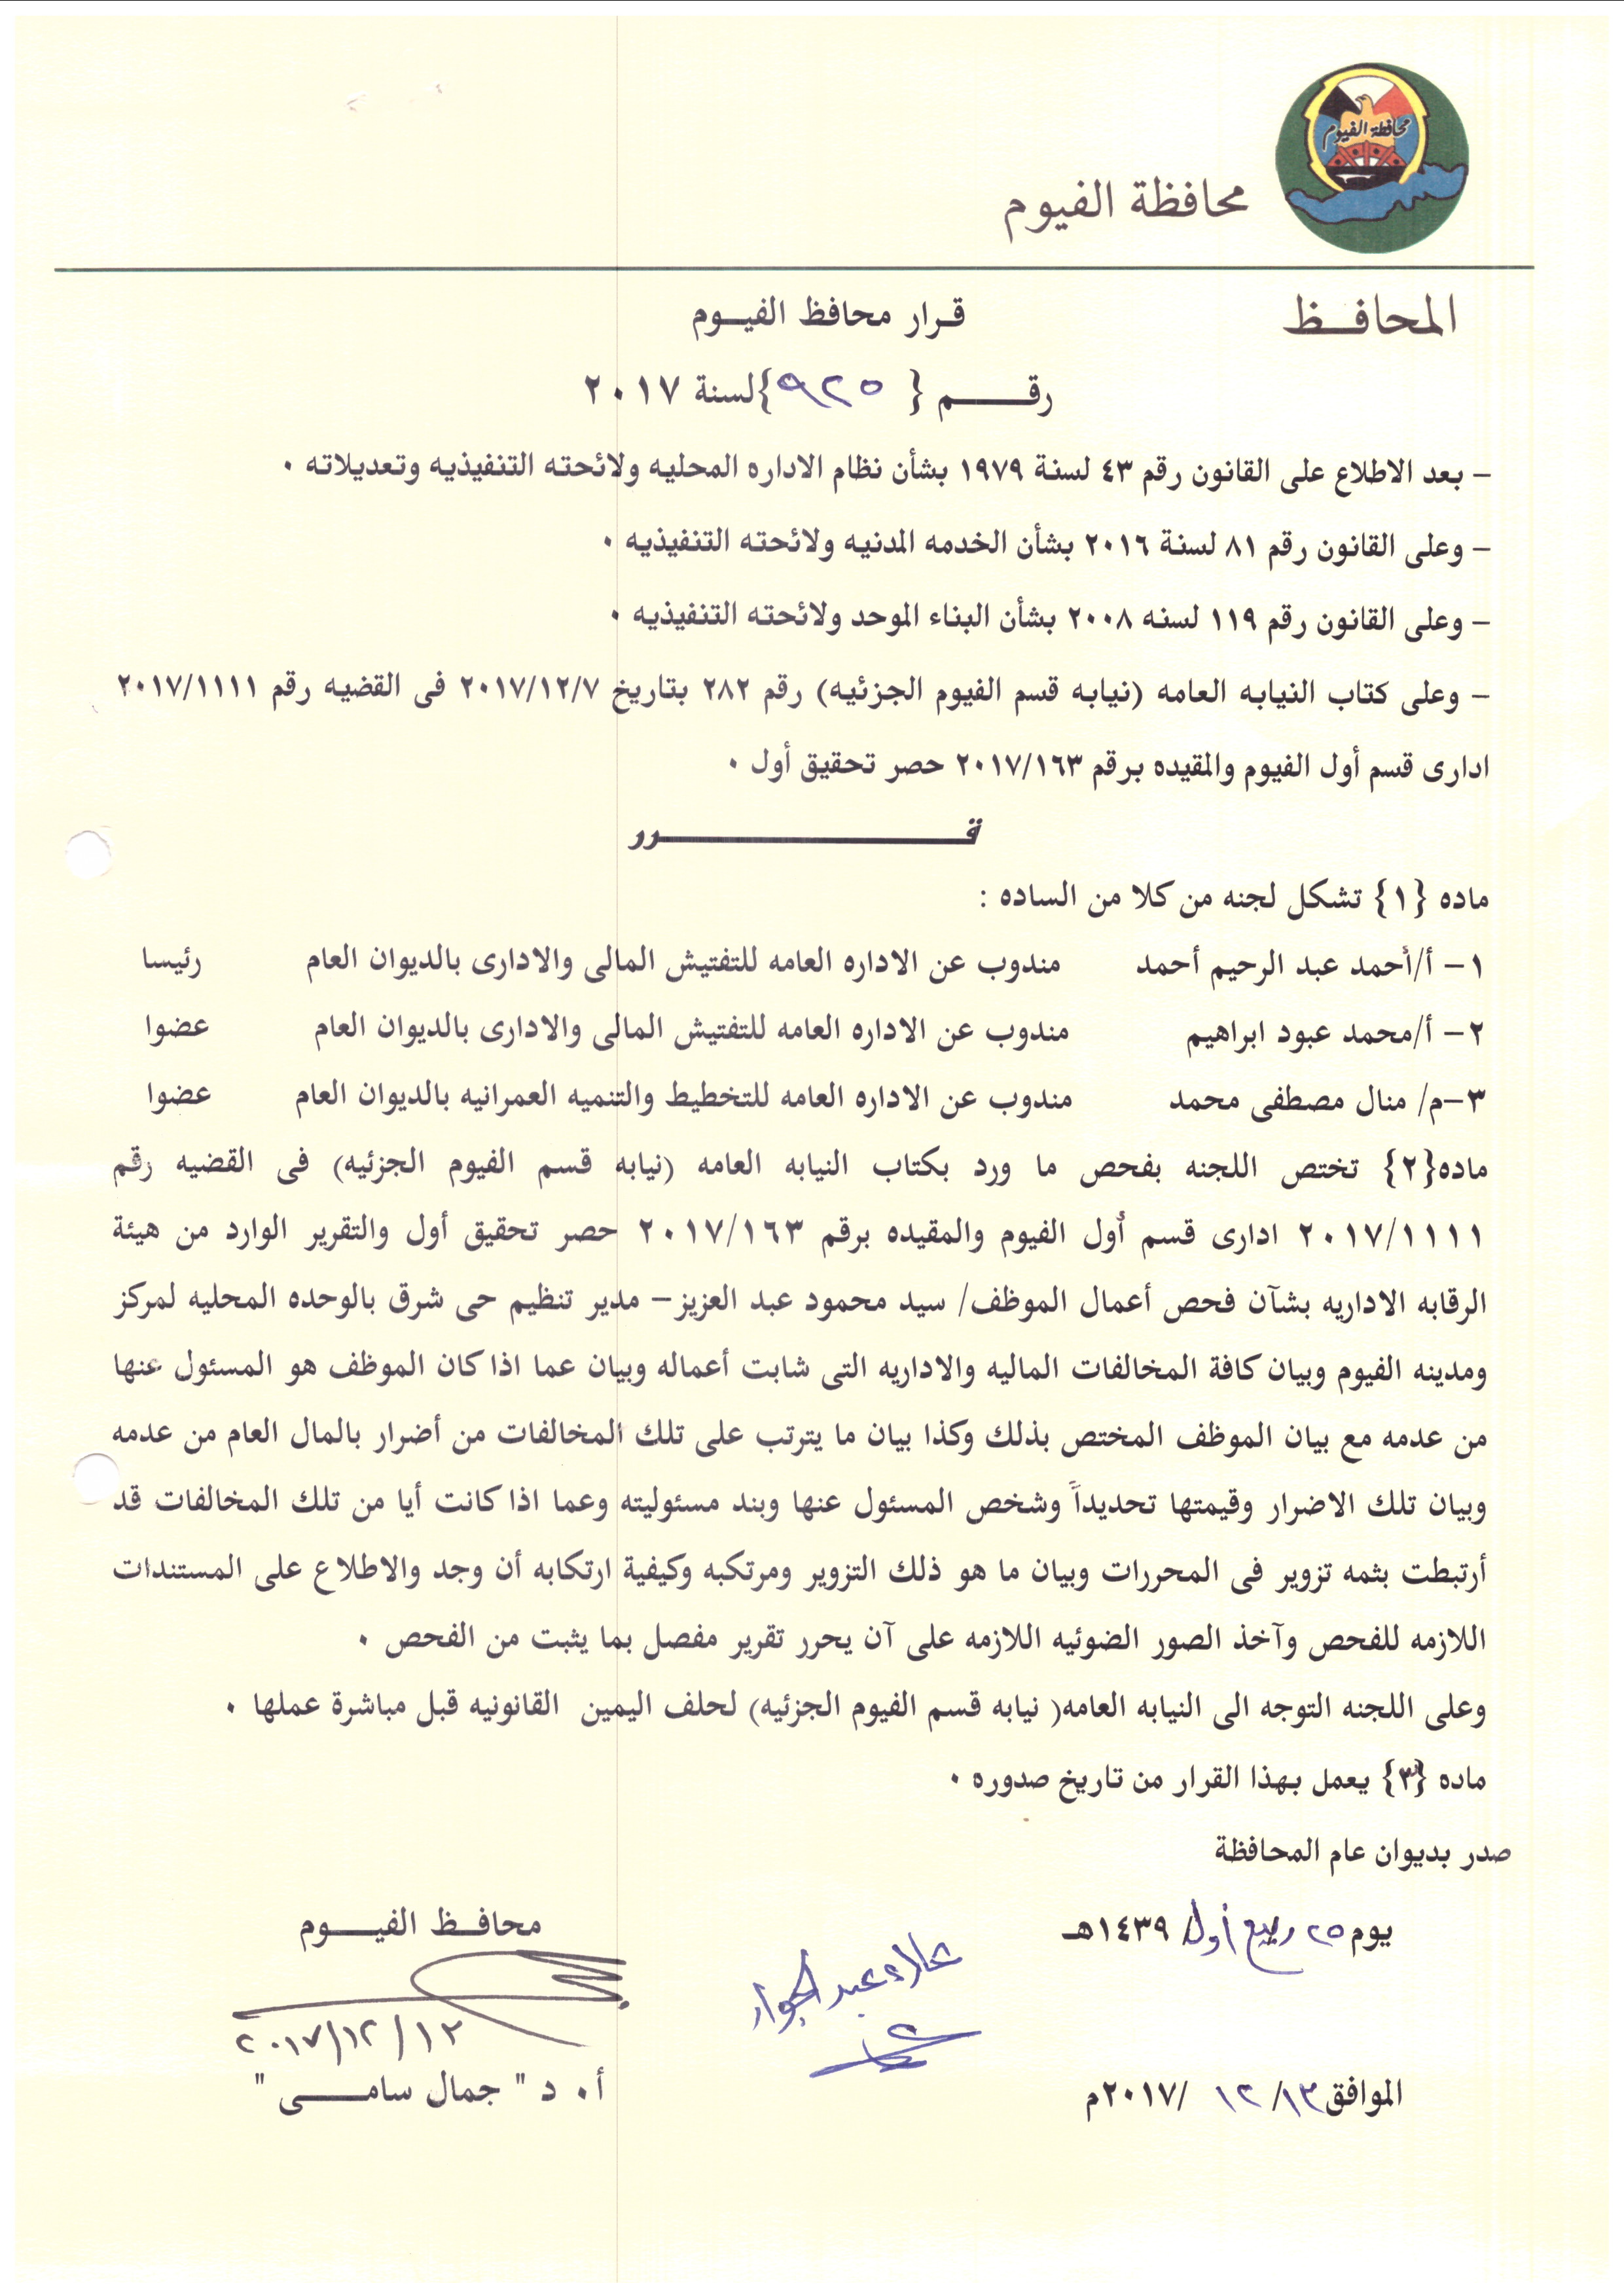 محافظة الفيوم
محافظة الفيوم
المحافــظ
قـرار محافظ الفيــوم
رقـــــم { ٩٢٥ }لسنة ٢٠١٧
– بعد الاطلاع على القانون رقم ٤٣ لسنة ١٩٧٩ بشأن نظام الاداره المحليه ولائحته التنفيذيه وتعديلاته ٠
– وعلى القانون رقم ٨١ لسنة ٢٠١٦ بشأن الخدمه المدنيه ولائحته التنفيذيه ٠
– وعلى القانون رقم ١١٩ لسنه ٢٠٠٨ بشأن البناء الموحد ولائحته التنفيذيه ٠
– وعلى كتاب النيابه العامه (نيابه قسم الفيوم الجزئيه) رقم ٢٨٢ بتاريخ ٢٠١٧/١٢/٧ فى القضيه رقم ٢٠١٧/١١١١
ادارى قسم أول الفيوم والمقيده برقم ٢٠١٧/١٦٣ حصر تحقيق أول ٠
قـــــــــــــــــرر
ماده {١} تشكل لجنه من كلا من الساده :
١– أ/أحمد عبد الرحيم أحمد مندوب عن الاداره العامه للتفتيش المالى والادارى بالديوان العام رئيسا
٢– أ/محمد عبود ابراهيم مندوب عن الاداره العامه للتفتيش المالى والادارى بالديوان العام عضوا
٣–م/ منال مصطفى محمد مندوب عن الاداره العامه للتخطيط والتنميه العمرانيه بالديوان العام عضوا
ماده{٢} تختص اللجنه بفحص ما ورد بكتاب النيابه العامه (نيابه قسم الفيوم الجزئيه) فى القضيه رقم
٢٠١٧/١١١١ ادارى قسم أول الفيوم والمقيده برقم ٢٠١٧/١٦٣ حصر تحقيق أول والتقرير الوارد من هيئة
الرقابه الاداريه بشآن فحص أعمال الموظف/ سيد محمود عبد العزيز– مدير تنظيم حى شرق بالوحده المحليه لمركز
ومدينه الفيوم وبيان كافة المخالفات الماليه والاداريه التى شابت أعماله وبيان عما اذا كان الموظف هو المسئول عنها
من عدمه مع بيان الموظف المختص بذلك وكذا بيان ما يترتب على تلك المخالفات من أضرار بالمال العام من عدمه
وبيان تلك الاضرار وقيمتها تحديداً وشخص المسئول عنها وبند مسئوليته وعما اذا كانت أيا من تلك المخالفات قد
أرتبطت بثمه تزوير فى المحررات وبيان ما هو ذلك التزوير ومرتكبه وكيفية ارتكابه أن وجد والاطلاع على المستندات
اللازمه للفحص وآخذ الصور الضوئيه اللازمه على آن يحرر تقرير مفصل بما يثبت من الفحص ٠
وعلى اللجنه التوجه الى النيابه العامه( نيابه قسم الفيوم الجزئيه) لحلف اليمين القانونيه قبل مباشرة عملها ٠
ماده {٣} يعمل بهذا القرار من تاريخ صدوره ٠
صدر بديوان عام المحافظة
يوم ٢٥ ربيع أول ١٤٣٩هـ
محافــظ الفيــــوم
علاء عبد الجواد
٢٠١٧/١٢/١٣
الموافق ١٣/ ١٢ /٢٠١٧م
أ٠ د " جمال سامـــــى "